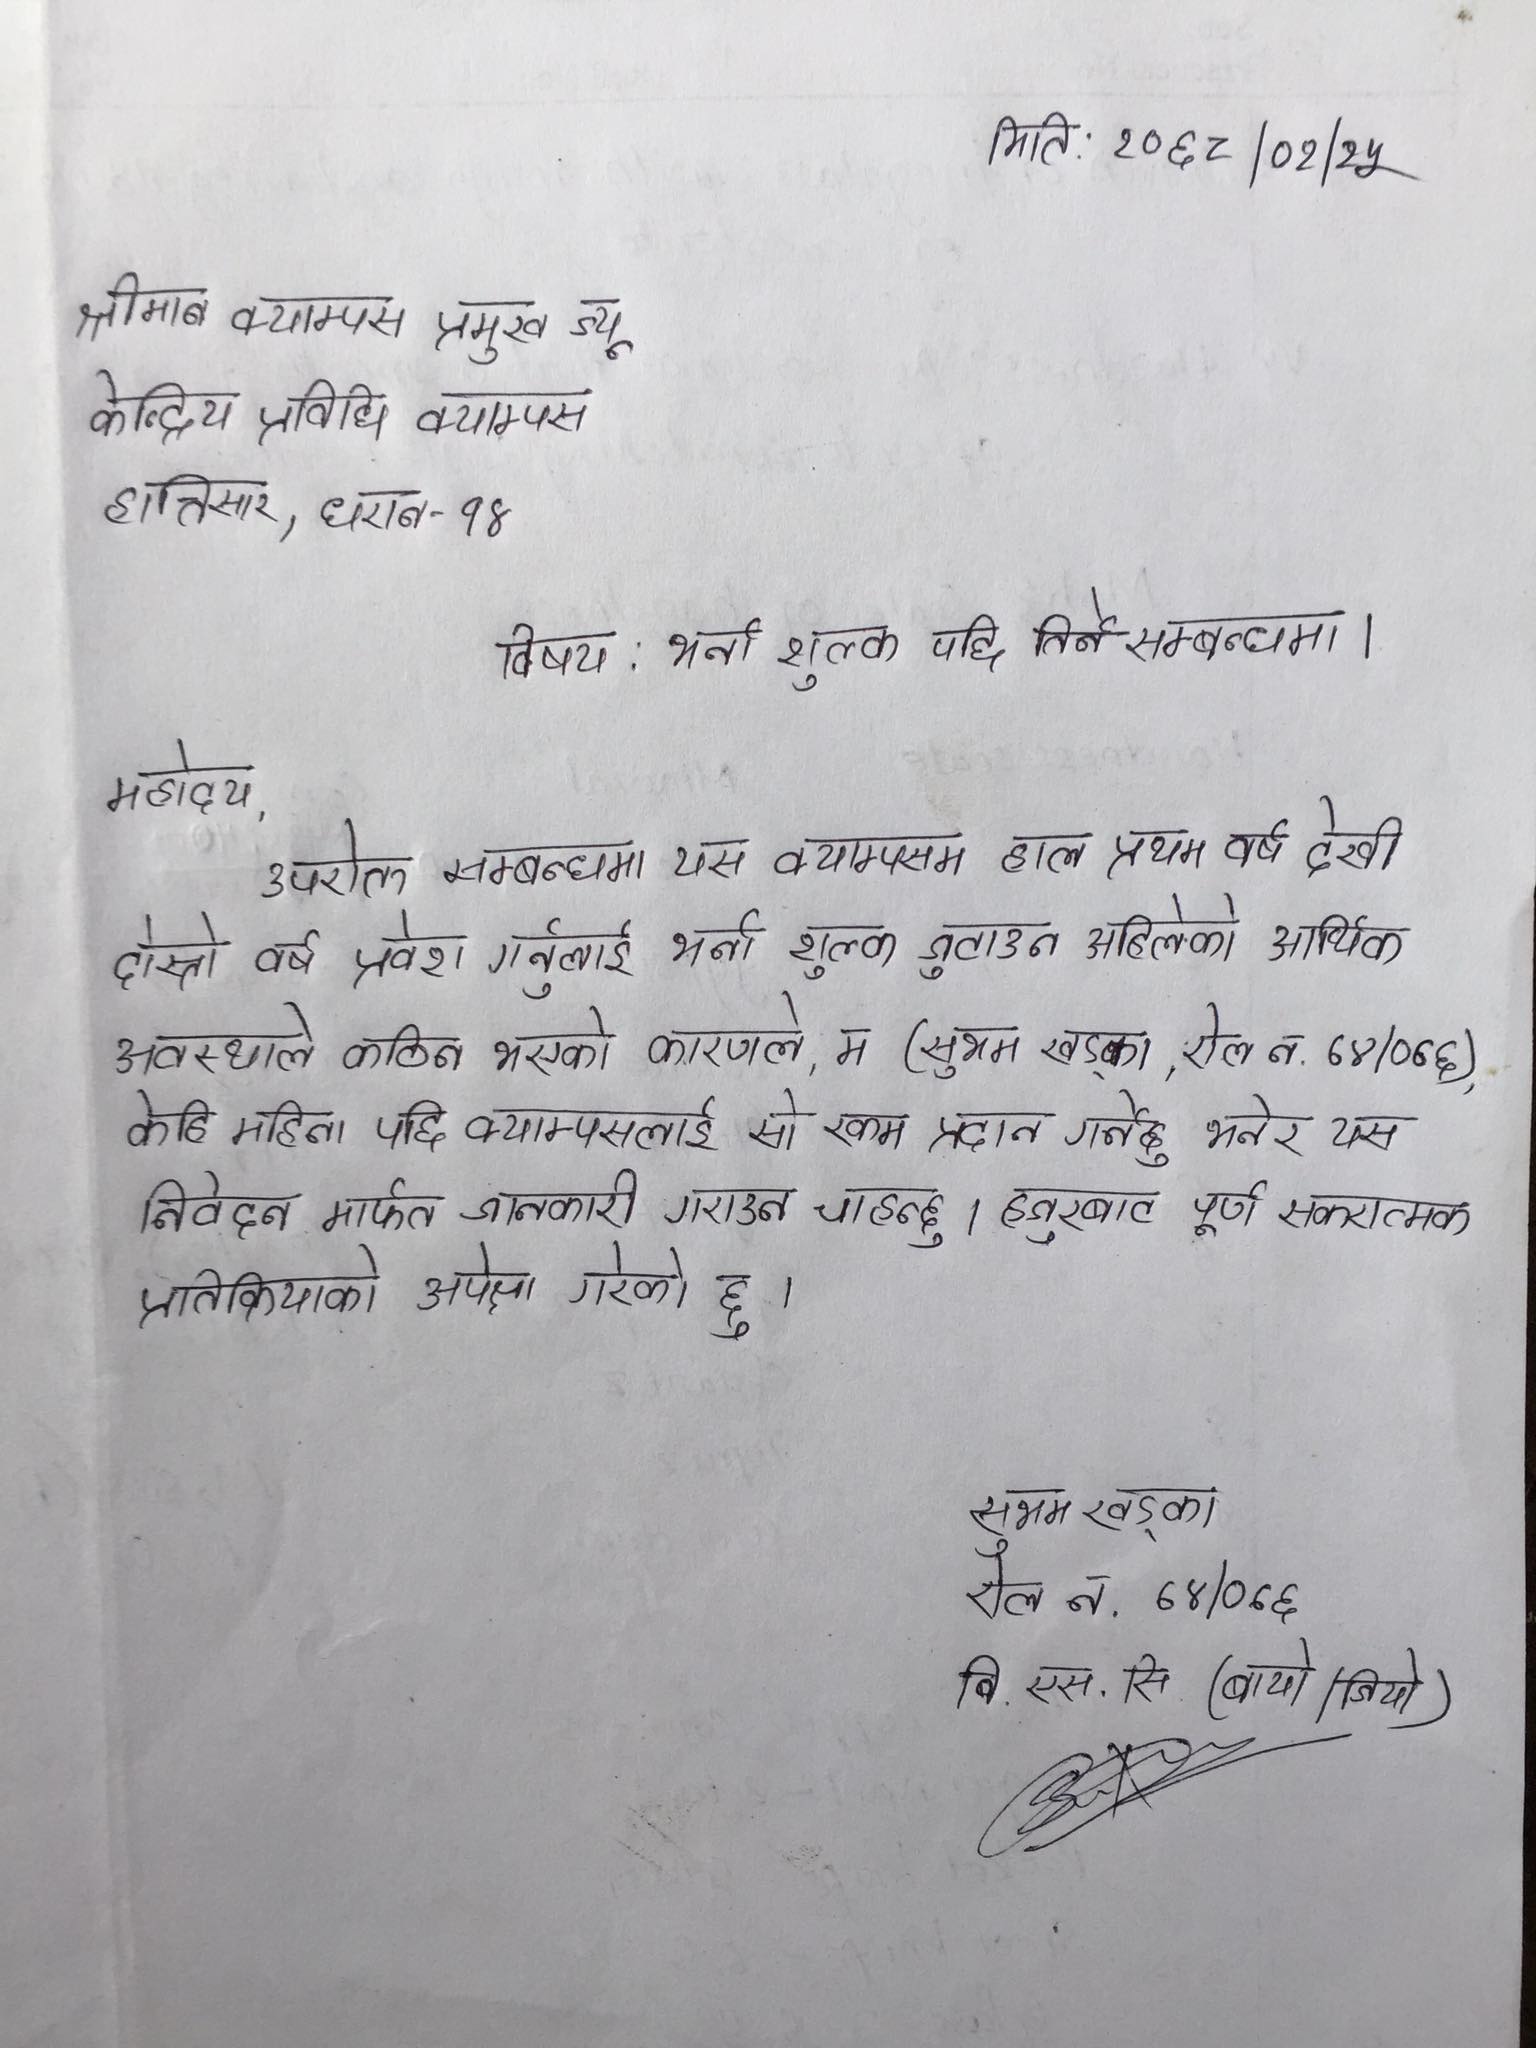 मिति: २०६८/०२/२५
श्रीमान क्याम्पस प्रमुख ज्यू
केन्द्रिय प्रविधि क्याम्पस
हात्तिसार, धरान-१४
विषय: भर्ना शुल्क पछि तिर्ने सम्बन्धमा।
महोदय,
उपरोक्त सम्बन्धमा यस क्याम्पसम हाल प्रथम वर्ष देखी
दोस्रो वर्ष प्रवेश गर्नुलाई भर्ना शुल्क जुटाउन अहिलेको आर्थिक
अवस्थाले कठिन भएको कारणले, म (सुभम खड्का, रोल नं. ७४/०७६),
केहि महिना पछि क्याम्पसलाई सो रकम प्रदान गर्नेछु भनेर यस
निवेदन मार्फत जानकारी गराउन चाहन्छु। हजुरबाट पूर्ण सकरात्मक
प्रतिक्रियाको अपेक्षा गरेको छु।
सुभम खड्का
रोल नं. ७४/०७६
बि. एस. सि. (बायो/जियो)